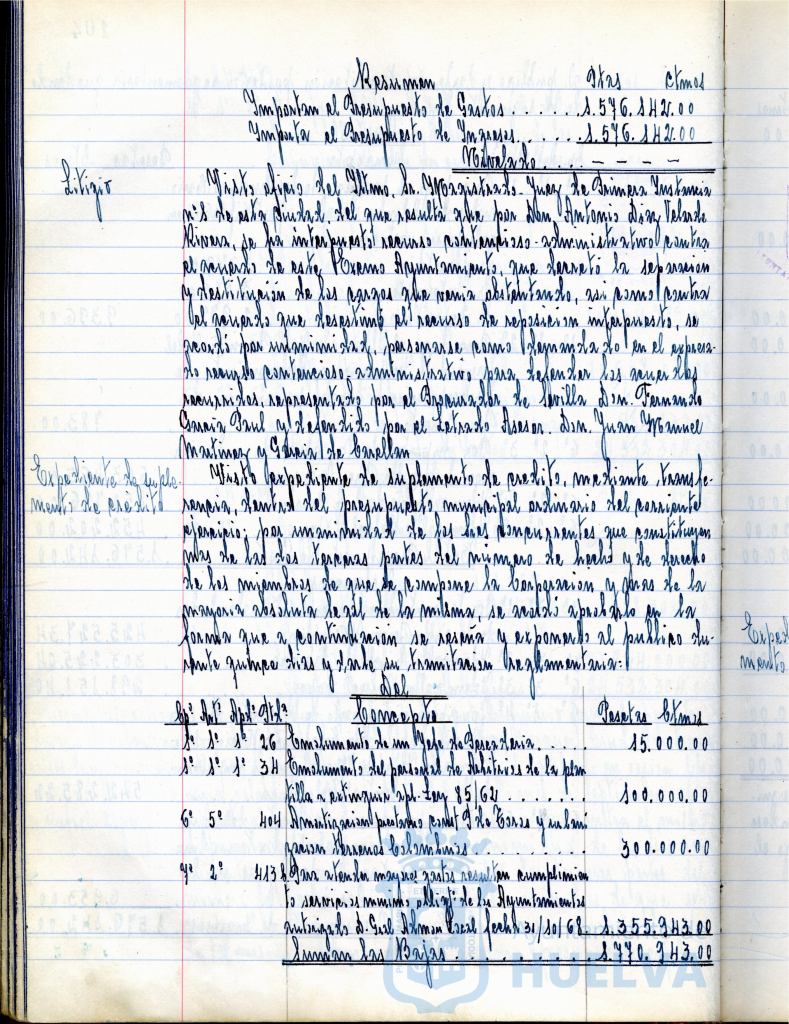 Resumen Ptas Ctmos
Importan el Presupuesto de Gastos . . . . . . 1.576.142.00
Importa el Presupuesto de Ingresos . . . . . 1.576.142.00
Nivelado . . . - - - -
Litigio
Visto oficio del Iltmo. Sr. Magistrado-Juez de Primera Instancia
nº5 de esta Ciudad, del que resulta que por Don Antonio Díaz Velarde
Rivera, se ha interpuesto recurso contencioso-administrativo contra
el acuerdo de este Excmo Ayuntamiento, que decretó la separación
y destitución de los cargos que venía obstentando, asi como contra
el acuerdo que desestimó el recurso de reposición interpuesto, se
acordó por unanimidad, personarse como demandado en el expresa-
do recurso contencioso-administrativo para defender los acuerdos
recurridos, representado por el Procurador de Sevilla Don Fernando
García Paul y defendido por el Letrado Asesor Don Juan Manuel
Martinez y García de
Expediente de suple-
mento de credito
Visto expediente de suplemento de credito, mediante transfe-
rencia, dentro del presupuesto municipal ordinario del corriente
ejercicio; por unanimidad de los Sres concurrentes que constituyen
mas de las dos terceras partes del número de hecho y de derecho
de los miembros de que se compone la Corporación y mas de la
mayoría absoluta legal de la misma, se acordó aprobarlo en la
forma que a continuación se reseña y exponerlo al publico du-
rante quince días y darle su tramitación reglamentaria:
Del
Cpº Artº Aptº Ptdª Concepto Pesetas Ctmos
1º 1º 1º 26 Emolumento de un Jefe de . . . . 15.000.00
1º 1º 1º 34 Emolumento del personal de Arbitrios de la plan
tilla a extinguir Ley 85/62 . . . . . . . 100.000.00
6º 5º 404 Amortizacion prestamo Pº de Toros y urbani
zacion terrenos Colombinos . . . . . . . . 300.000.00
7º 2º 413 b Para atender mayores gastos resulten cumplimien
to servicios minimos obligº de los Ayuntamientos
autorizado D. Gral Admon Local fecha 31/10/68 . . 1.355.943.00
Suman las Bajas . . . . . . . . . 1.770.943.00
HUELVA